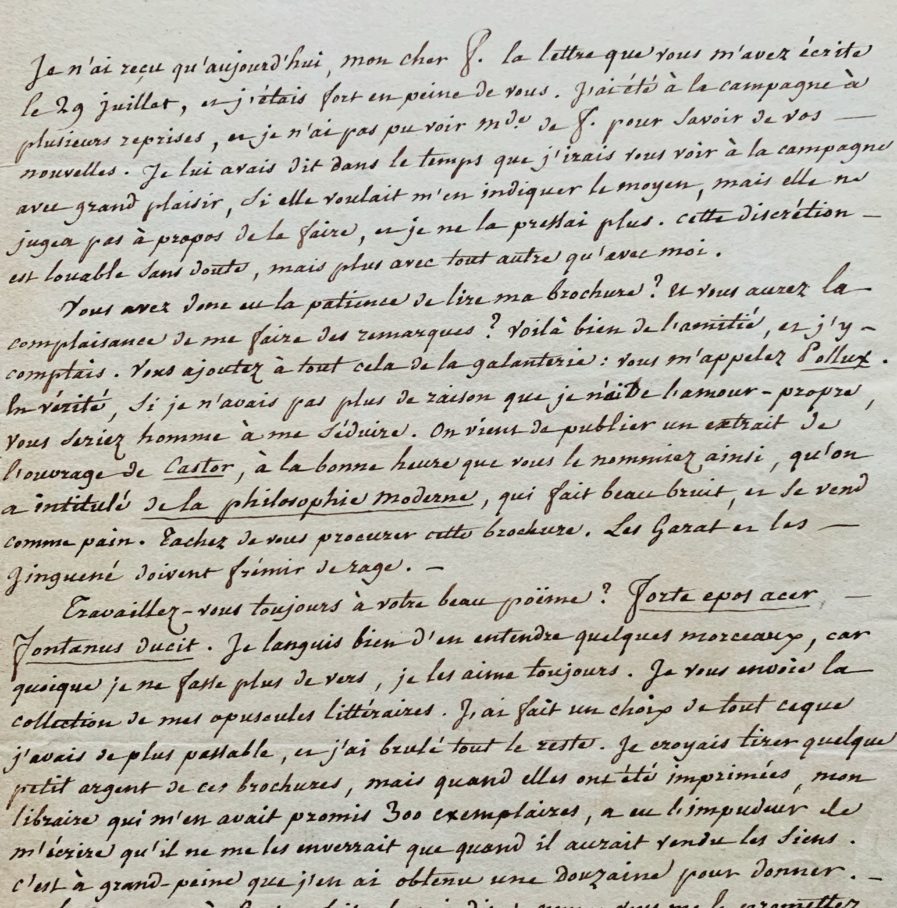 Je n'ai reçu qu'aujourd'hui, mon cher F. la lettre que vous m'avez écrite
le 29 juillet, et j'étais fort en peine de vous. J'ai été à la campagne à
plusieurs reprises, et je n'ai pas pu voir mde. de F. pour savoir de vos —
nouvelles. Je lui avais dit dans le temps que j'irais vous voir à la campagne
avec grand plaisir, si elle voulait m'en indiquer le moyen, mais elle ne
jugea pas à propos de le faire, et je ne la pressai plus. cette discrétion —
est louable sans doute, mais plus avec tout autre qu'avec moi.
Vous avez donc eu la patience de lire ma brochure? et vous aurez la
complaisance de me faire des remarques? voilà bien de l'amitié, et j'y —
comptais. Vous ajoutez à tout cela de la galanterie: vous m'appelez Pollux.
En vérité, si je n'avais pas plus de raison que je n'ai de l'amour-propre,
vous seriez homme à me séduire. On vient de publier un extrait de
l'ouvrage de Castor, à la bonne heure que vous le nommiez ainsi, qu'on
a intitulé de la philosophie moderne, qui fait beau bruit, et se vend
comme pain. Tachez de vous procurer cette brochure. Les Garat et les —
Jinguené doivent frémir de rage. —
Travaillez-vous toujours à votre beau poëme? Forte epos acer —
Fontanus ducit. Je languis bien d'en entendre quelques morceaux, car
quoique je ne fasse plus de vers, je les aime toujours. Je vous envoie la
collection de mes opuscules littéraires. J'ai fait un choix de tout ceque
j'avais de plus passable, et j'ai brulé tout le reste. Je croyais tirer quelque
petit argent de ces brochures, mais quand elles ont été imprimées, mon
libraire qui m'en avait promis 300 exemplaires, a eu l'impudeur de
m'écrire qu'il ne me les enverrait que quand il aurait vendu les siens.
c'est à grand-peine que j'en ai obtenu une douzaine pour donner. —